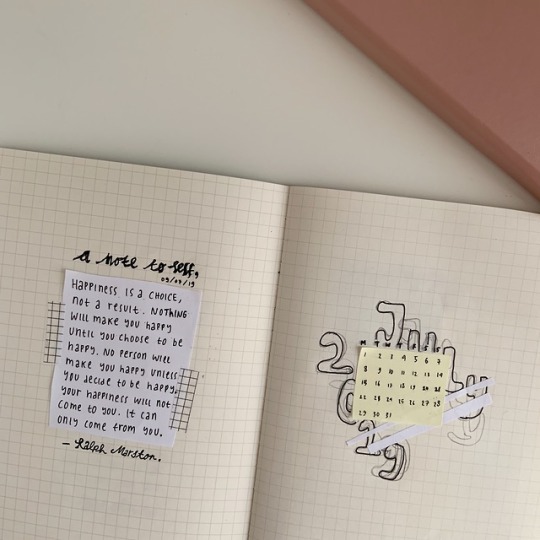 a note to self,
09/07/19
HAPPINESS IS A CHOICE,
NOT A RESULT. NOTHING
WILL MAKE YOU HAPPY
UNTIL YOU CHOOSE TO BE
HAPPY. NO PERSON WILL
MAKE YOU HAPPY UNLESS
YOU DECIDE TO BE HAPPY.
YOUR HAPPINESS WILL NOT
COME TO YOU. IT CAN
ONLY COME FROM YOU.
– Ralph Marston.
July
2019
M T W T F S S
1 2 3 4 5 6 7
8 9 10 11 12 13 14
15 16 17 18 19 20 21
22 23 24 25 26 27 28
29 30 31